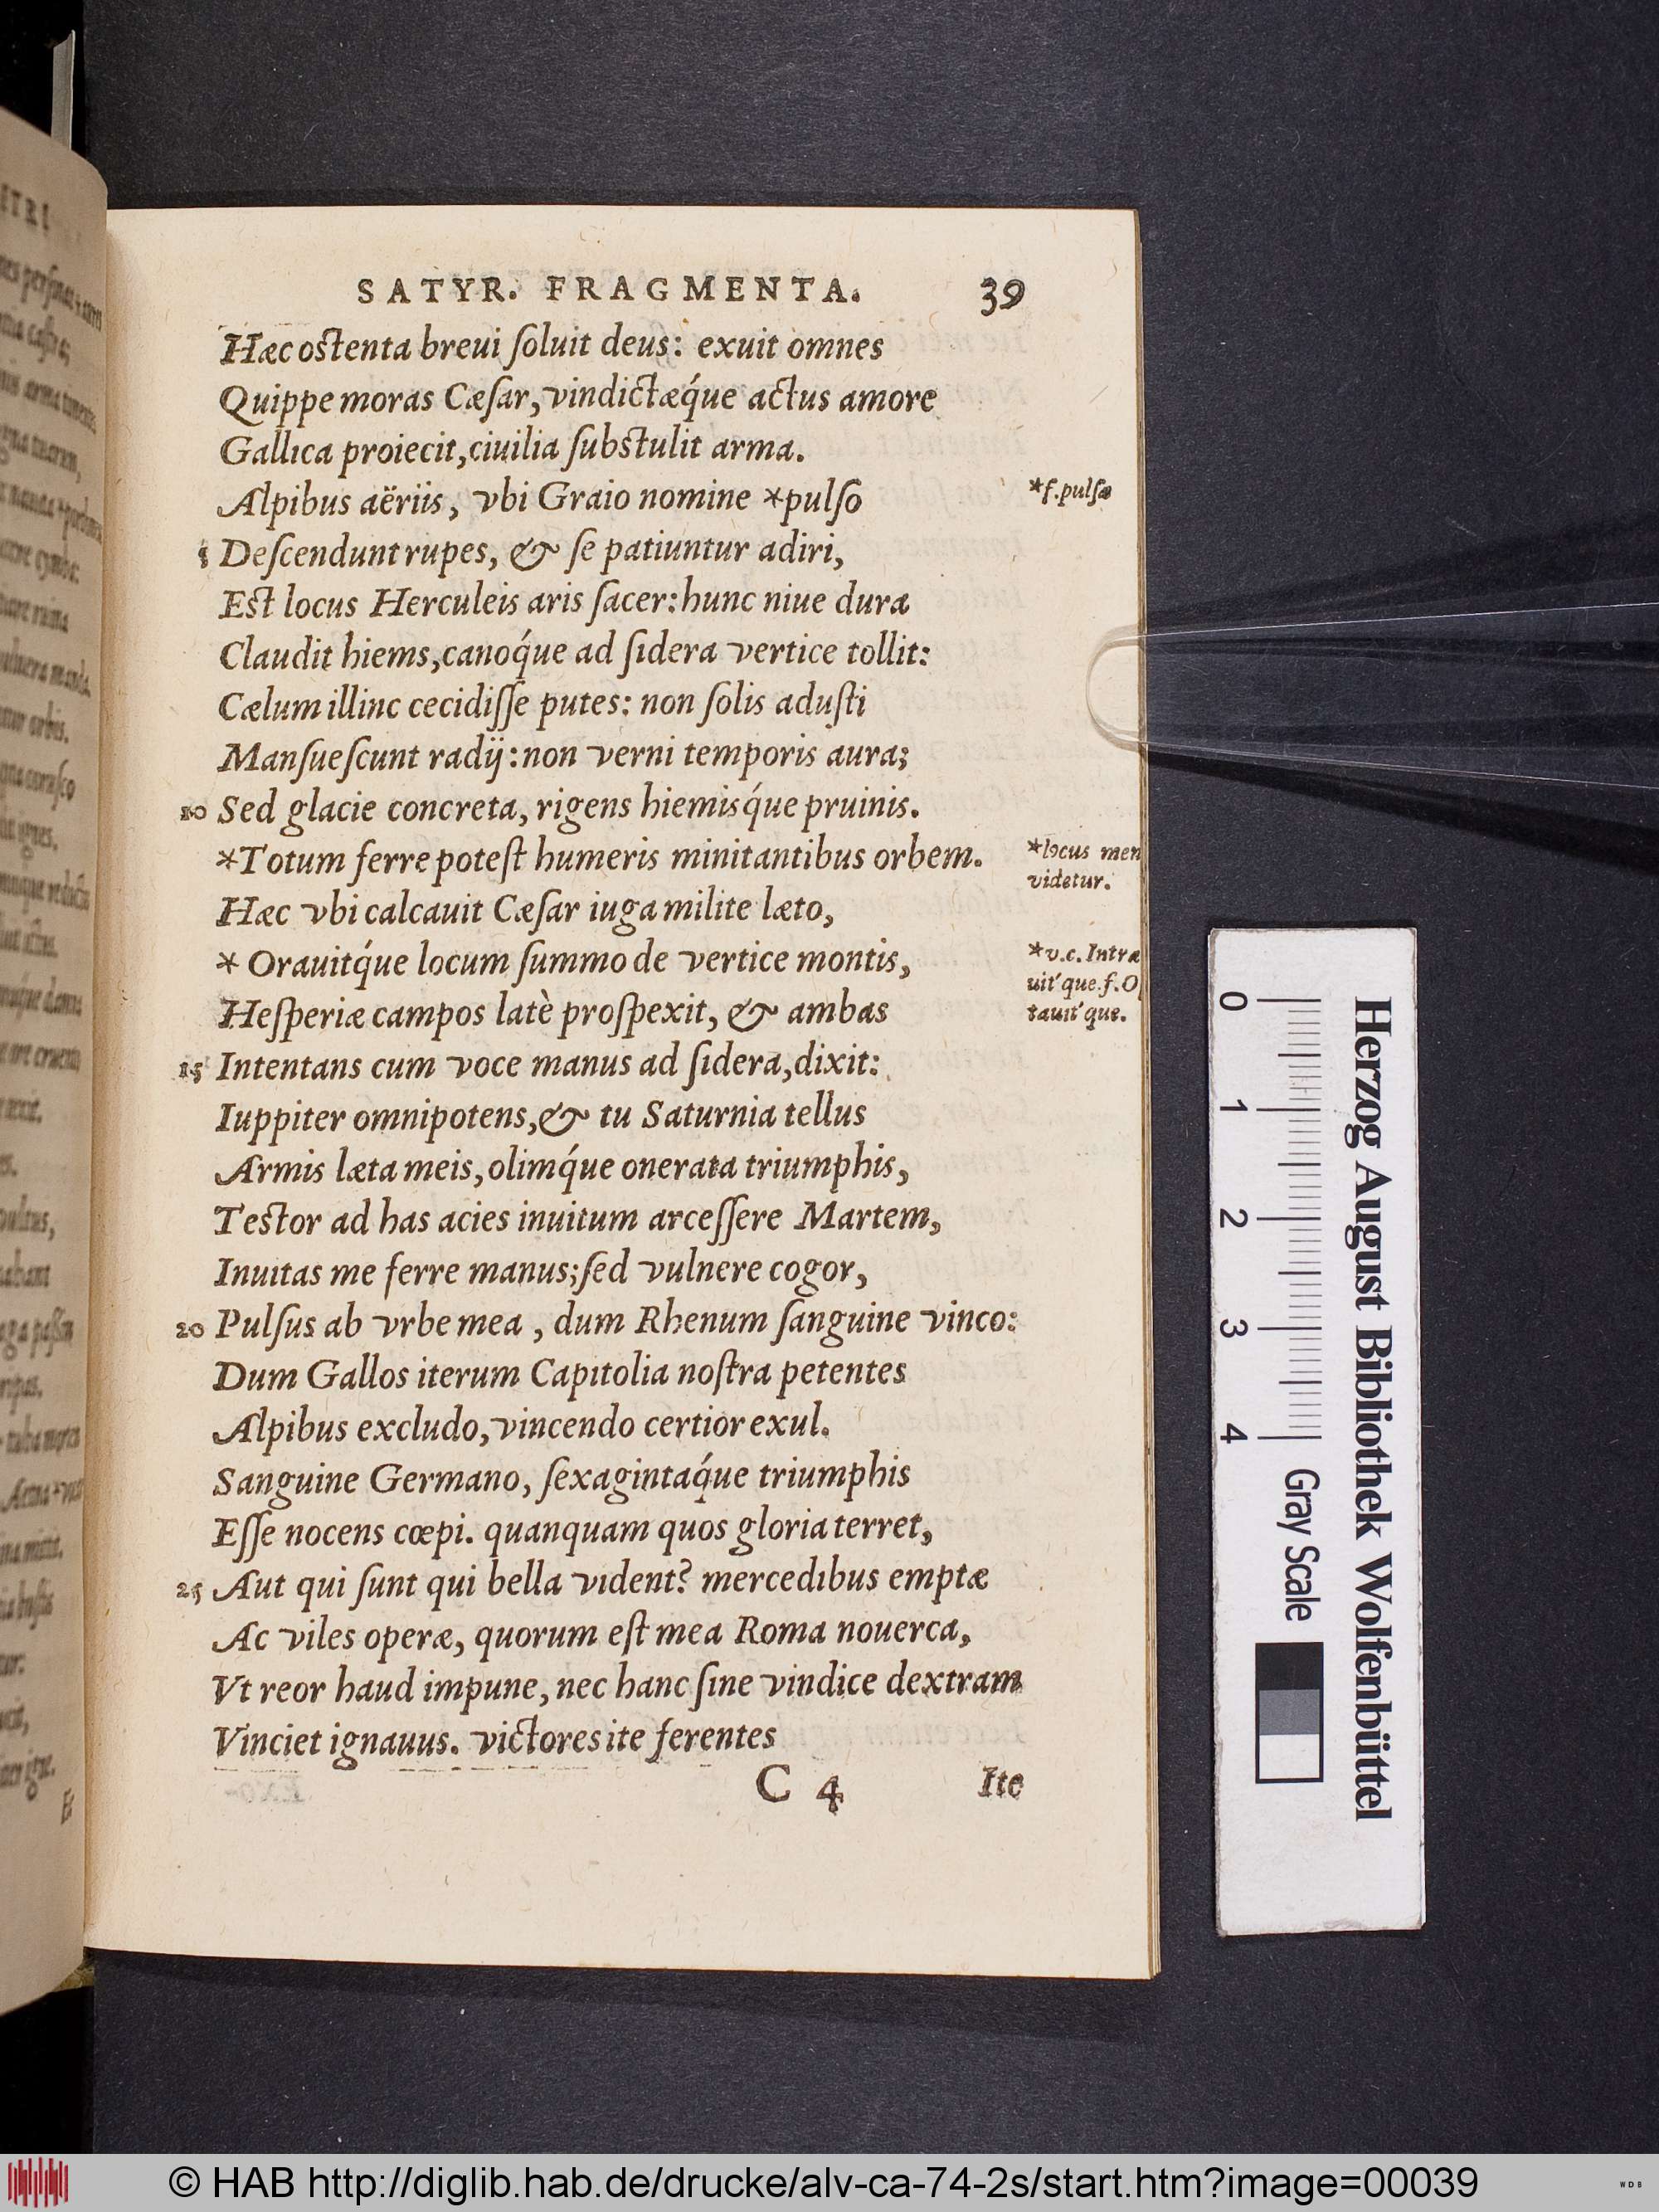 SATYR. FRAGMENTA. 39
Hæc ostenta breui ſoluit deus: exuit omnes
Quippe moras Cæſar, vindictæq́ue actus amore
Gallica proiecit, ciuilia ſubstulit arma.
Alpibus aëriis, vbi Graio nomine *pulſo
*f. pulſæ
5 Deſcendunt rupes, & ſe patiuntur adiri,
Est locus Herculeis aris ſacer: hunc niue dura
Claudit hiems, canoq́ue ad ſidera vertice tollit:
Cælum illinc cecidiſſe putes: non ſolis aduſti
Manſueſcunt radij: non verni temporis aura;
10 Sed glacie concreta, rigens hiemisq́ue pruinis.
*Totum ferre poteſt humeris minitantibus orbem.
*locus men
videtur.
Hæc vbi calcauit Cæſar iuga milite læto,
* Orauitq́ue locum ſummo de vertice montis,
*v.c. Intra
uit'que. f. O
tauit'que.
Heſperiæ campos latè proſpexit, & ambas
15 Intentans cum voce manus ad ſidera, dixit:
Iuppiter omnipotens, & tu Saturnia tellus
Armis læta meis, olimq́ue onerata triumphis,
Testor ad has acies inuitum arceſſere Martem,
Inuitas me ferre manus; ſed vulnere cogor,
20 Pulſus ab vrbe mea, dum Rhenum ſanguine vinco:
Dum Gallos iterum Capitolia noſtra petentes
Alpibus excludo, vincendo certior exul.
Sanguine Germano, ſexagintaq́ue triumphis
Eſſe nocens cœpi. quanquam quos gloria terret,
25 Aut qui ſunt qui bella vident? mercedibus emptæ
Ac viles operæ, quorum eſt mea Roma nouerca,
Vt reor haud impune, nec hanc ſine vindice dextram
Vinciet ignauus. victores ite ferentes
C 4 Ite
Herzog August Bibliothek Wolfenbüttel
0 1 2 3 4 Gray Scale
© HAB http://diglib.hab.de/drucke/alv-ca-74-2s/start.htm?image=00039
WDB